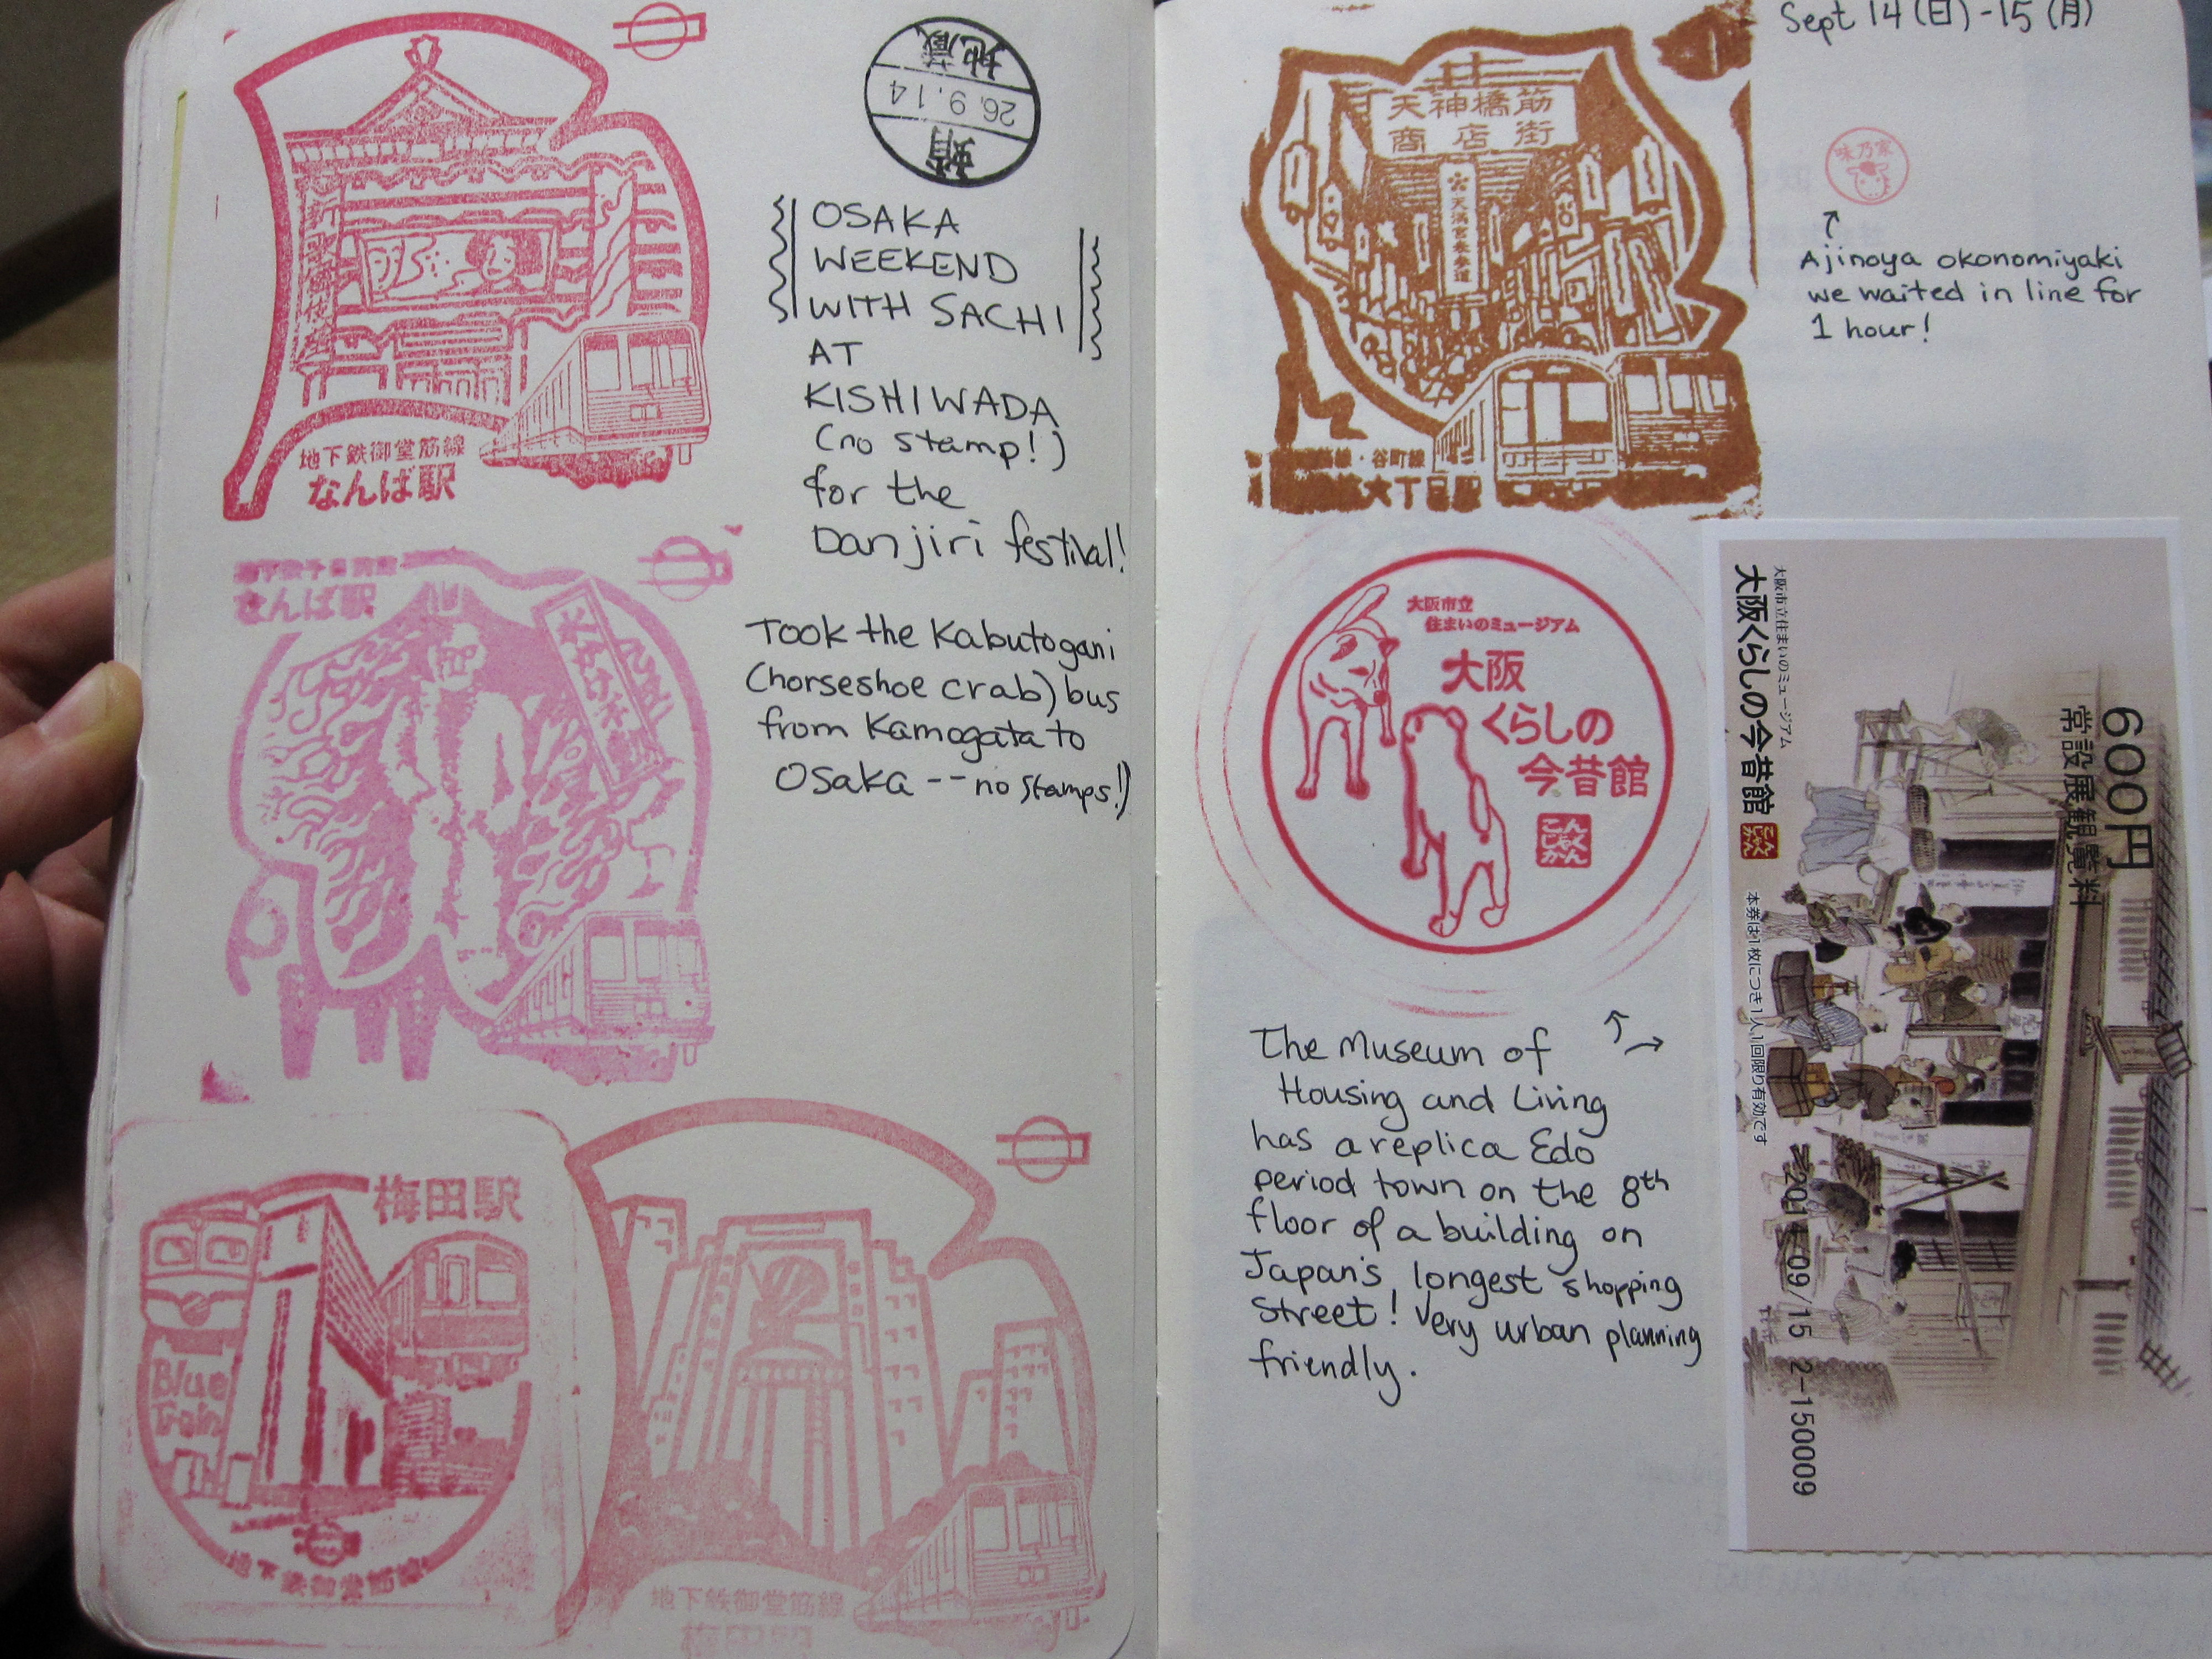 地下鉄御堂筋線
なんば駅
蛸
26.9.14
地蔵
OSAKA
WEEKEND
WITH SACHI
AT
KISHIWADA
(no stamp!)
for the
Danjiri festival!
なんば駅
Took the Kabutogani
(horseshoe crab) bus
from Kamogata to
Osaka -- no stamps!)
梅田駅
Blue
Train
地下鉄御堂筋線
地下鉄御堂筋線
梅田駅
Sept 14 (日) - 15 (月)
天神橋筋
商店街
天満宮表参道
線・谷町線
六丁目駅
味乃家
Ajinoya okonomiyaki
we waited in line for
1 hour!
大阪市立
住まいのミュージアム
大阪
くらしの
今昔館
こん
じゃく
かん
The Museum of
Housing and Living
has a replica Edo
period town on the 8th
floor of a building on
Japan's longest shopping
street! Very urban planning
friendly.
600円
常設展観覧料
大阪市立住まいのミュージアム
大阪くらしの今昔館
こん
じゃく
かん
本券は1枚につき1人1回限り有効です
2014/09/15 2-150009